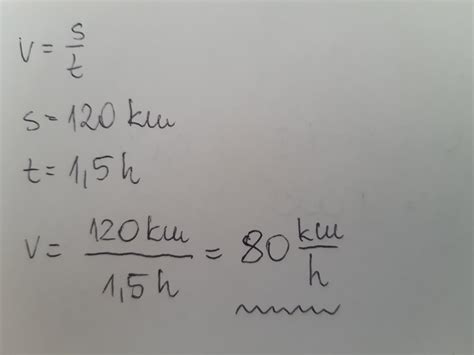 v = s/t
s = 120 km
t = 1,5 h
v = 120 km / 1,5 h = 80 km/h